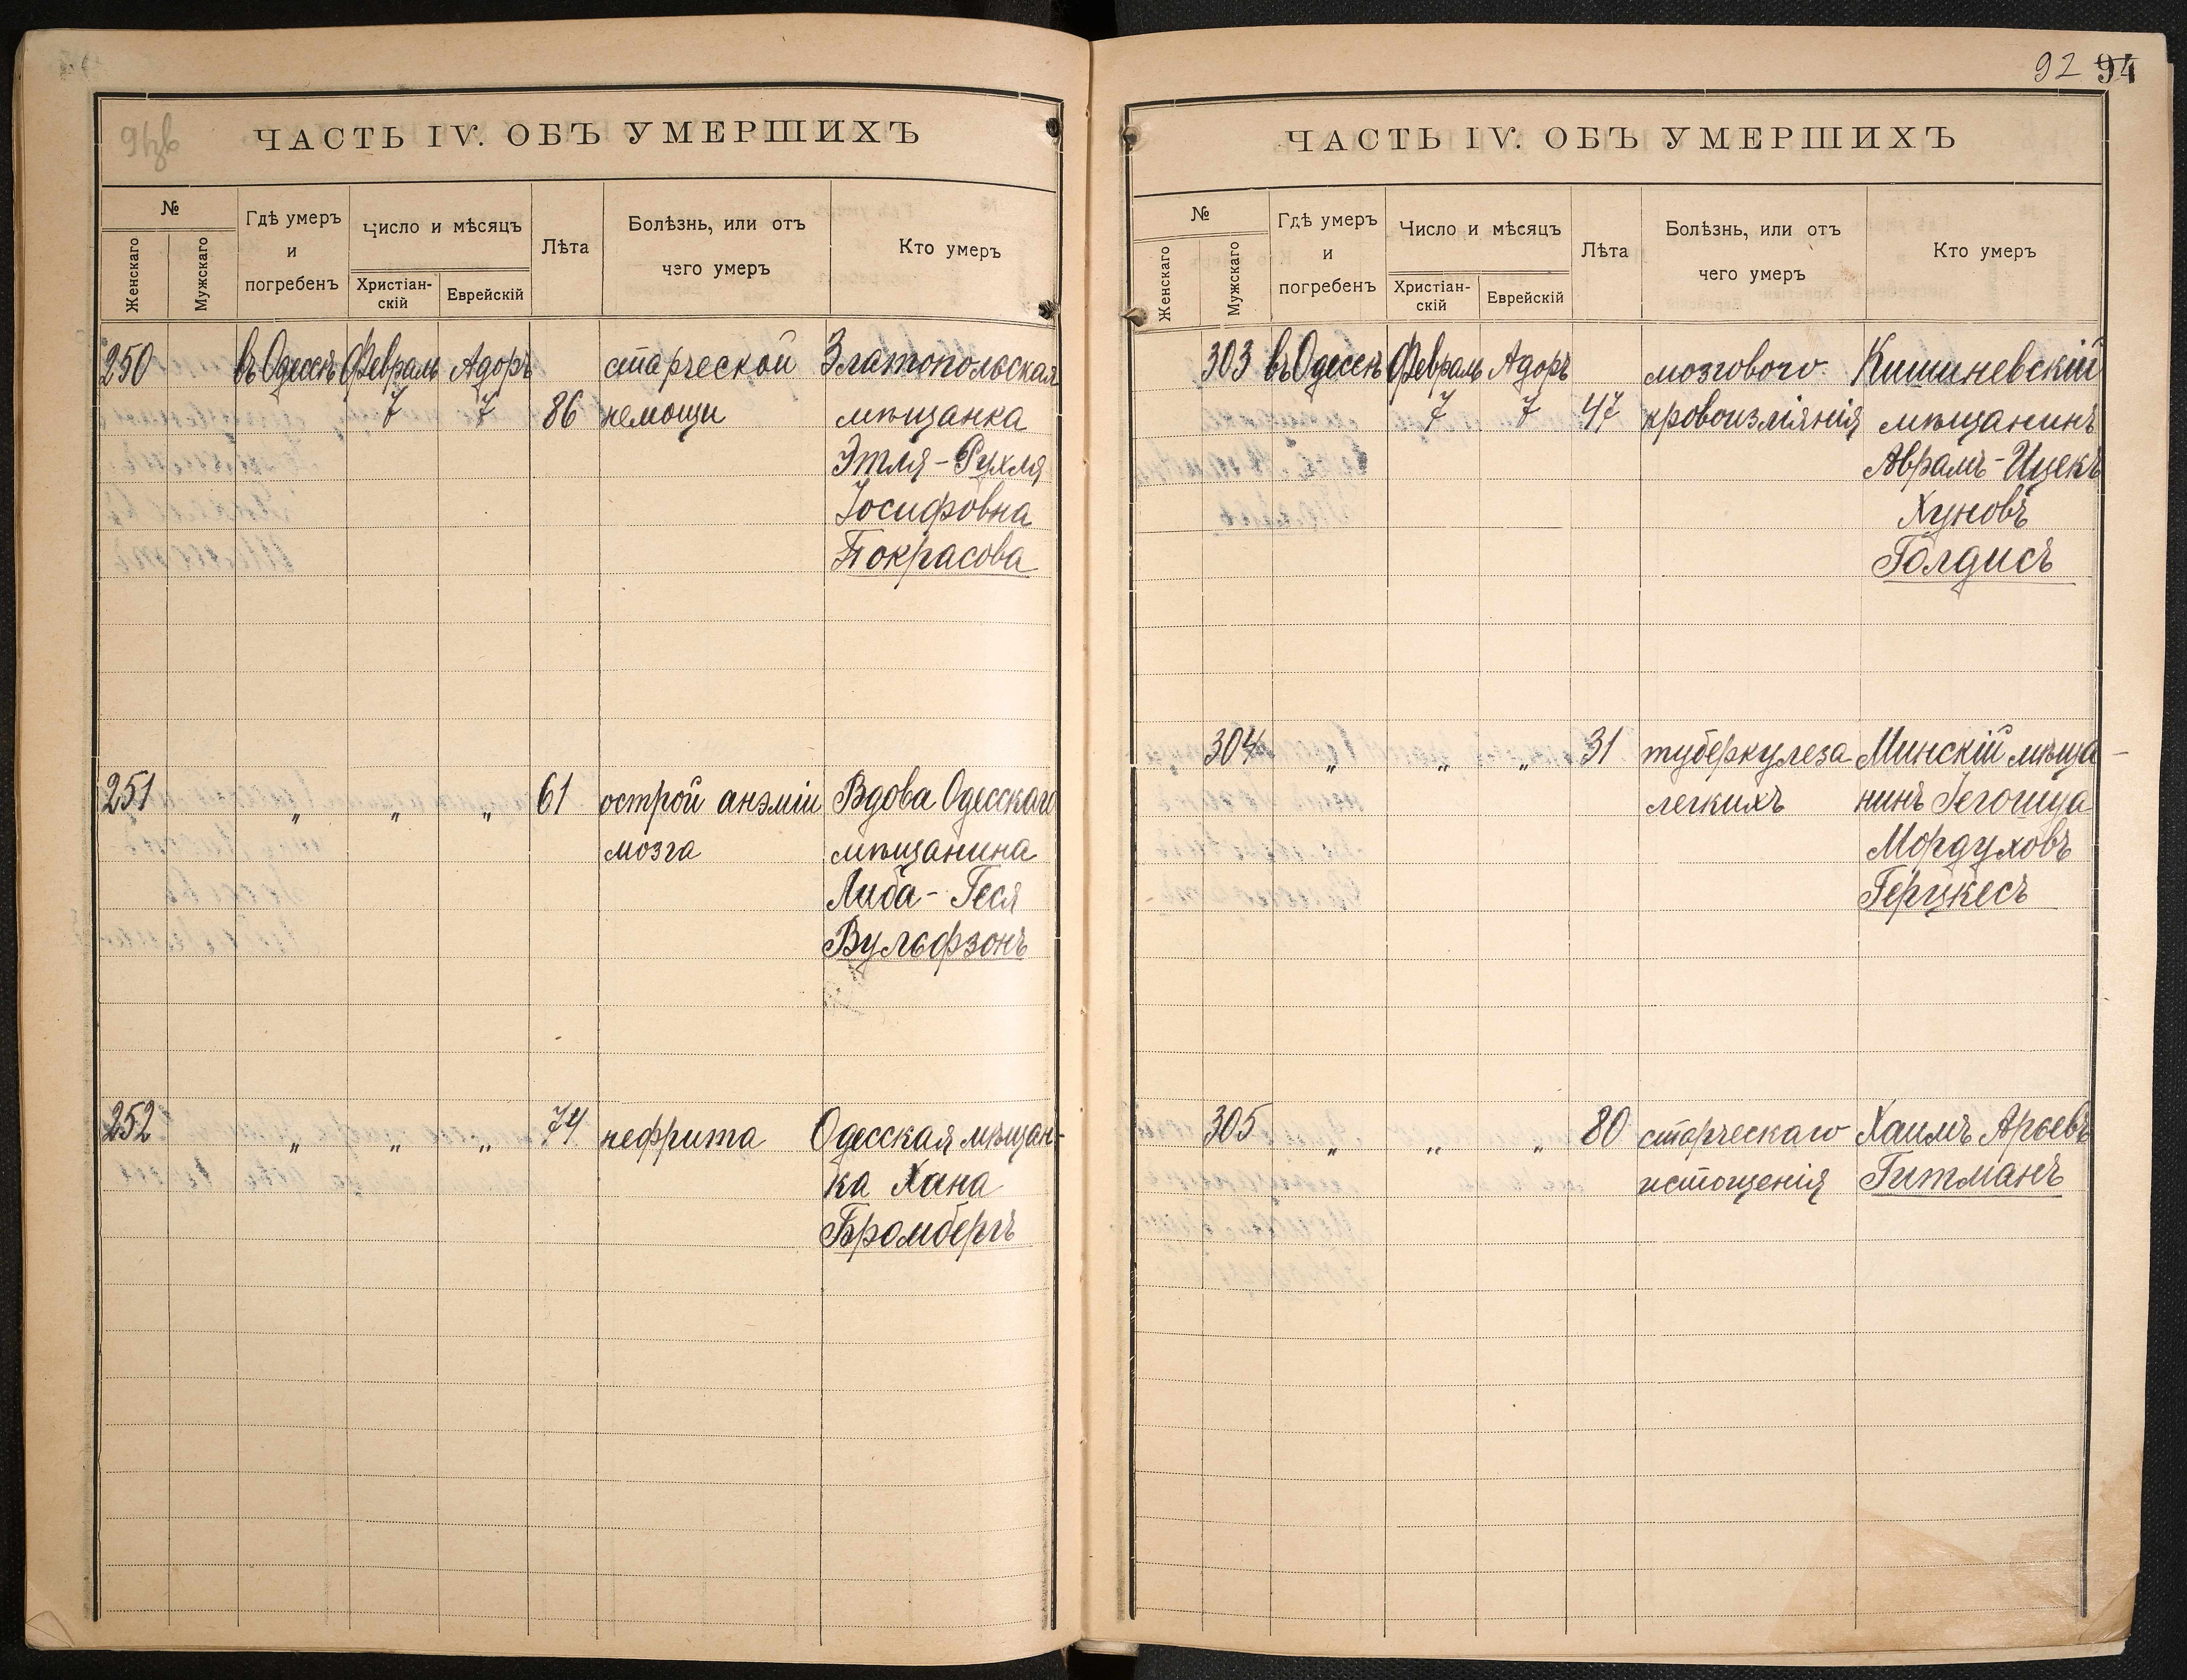 ЧАСТЬ IV. ОБЪ УМЕРШИХЪ
№
Женскаго
Мужскаго
Гдѣ умеръ
и
погребенъ
Число и мѣсяцъ
Христіан-
скій
Еврейскій
Лѣта
Болѣзнь, или отъ
чего умеръ
Кто умеръ
250 въ Одессѣ Февраль Адоръ старческой Златопольская
7 7 86 немощи мѣщанка
Этля-Рухля
Іосифовна
Покрасова
251 „ „ „ 61 острой анэміи Вдова Одесскаго
мозга мѣщанина
Либа-Геся
Вульфзонъ
252 „ „ „ 74 нефрита Одесская мѣщан-
ка Хана
Бромбергъ
92 94
ЧАСТЬ IV. ОБЪ УМЕРШИХЪ
№
Женскаго
Мужскаго
Гдѣ умеръ
и
погребенъ
Число и мѣсяцъ
Христіан-
скій
Еврейскій
Лѣта
Болѣзнь, или отъ
чего умеръ
Кто умеръ
303 въ Одессѣ Февраль Адоръ мозгового Кишиневскій
7 7 47 кровоизліянія мѣщанинъ
Аврамъ-Ицекъ
Хуновъ
Голдисъ
304 „ „ „ 31 туберкулеза Минскій мѣща-
легкихъ нинъ Гегошуа
Мордуховъ
Герцкесъ
305 „ „ „ 80 старческаго Хаимъ Арьевъ
истощенія Гитманъ